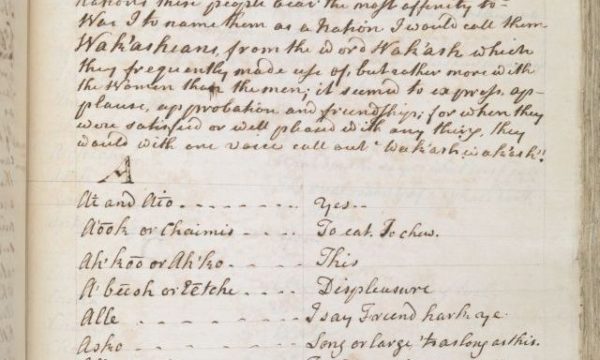 nations these people bear the most affinity to-
Was I to name them as a Nation I would call them
Wak'asheans, from the word Wak'ash which
they frequently made use of, but rather more with
the Women than the men; it seemed to express ap-
plause, approbation and friendship; for when they
were satisfied or well pleased with any thing, they
would with one voice call out Wak'ash wak'ash!!
A
Ai and Aio - - - - - - - Yes - -
Aook or Chaimis - - - - To eat. To chew.
Ah'koo or Ah'ko - - - - This
A'beesh or Eetche - - - - Displeasure
Alle - - - - - - I say Friend hark ye.
Asko - - - - - - Long or large 'tis as long as this.